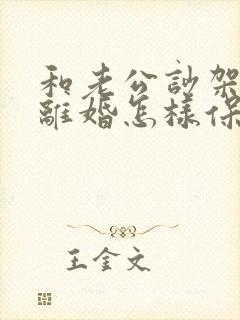 和老公訃架
離婚怎樣保
王金文